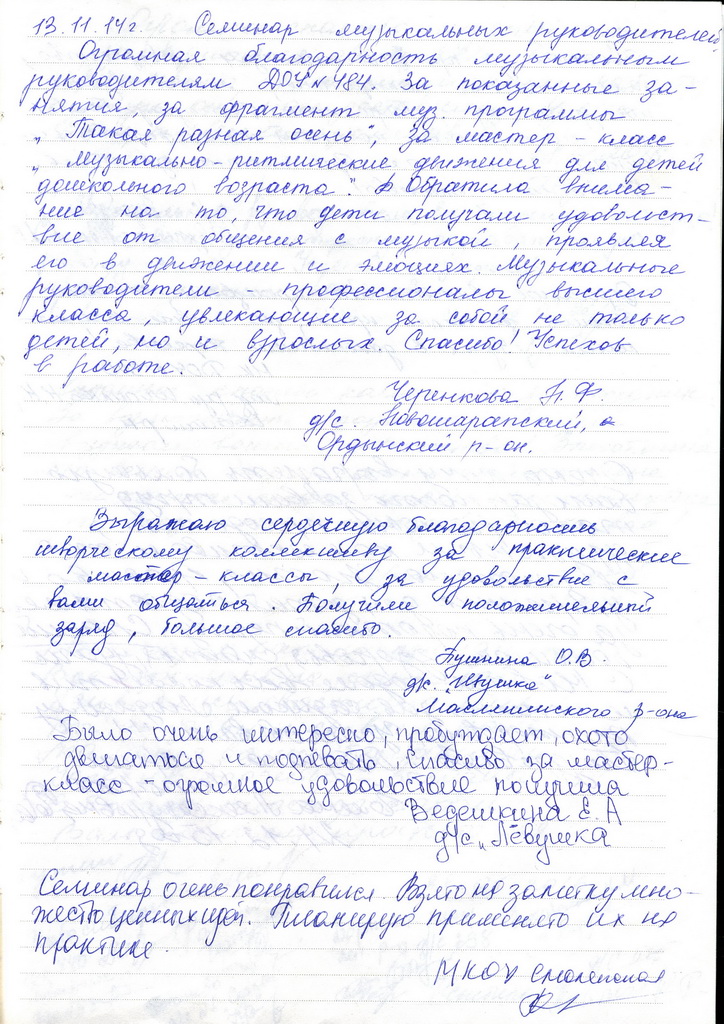 13.11.14г. Семинар музыкальных руководителей
Огромная благодарность музыкальным
руководителям ДОУ № 484. За показанные за-
нятия, за фрагмент муз. программы
„Такая разная осень", за мастер-класс
„Музыкально-ритмические движения для детей
дошкольного возраста". Обратила внима-
ние на то, что дети получали удовольст-
вие от общения с музыкой, проявляя
его в движении и эмоциях. Музыкальные
руководители - профессионалы высшего
класса, увлекающие за собой не только
детей, но и взрослых. Спасибо! Успехов
в работе.
Черенкова Н.Ф.
д/с. Новошарапский,
Ордынский р-он.
Выражаю сердечную благодарность
творческому коллективу за практические
мастер-классы, за удовольствие с
вами общаться. Получили положительный
заряд, большое спасибо.
Пушнина О.В.
д/с. „Ивушка"
Маслянинского р-она
Было очень интересно, пробуждает, охото
двигаться и подпевать, спасибо за мастер-
класс - огромное удовольствие получила
Ведешкина Е.А
д/с „Лёвушка
Семинар очень понравился. Взято на заметку мно-
жество ценных идей. Планирую применято их на
практике.
МКОУ Смоленская